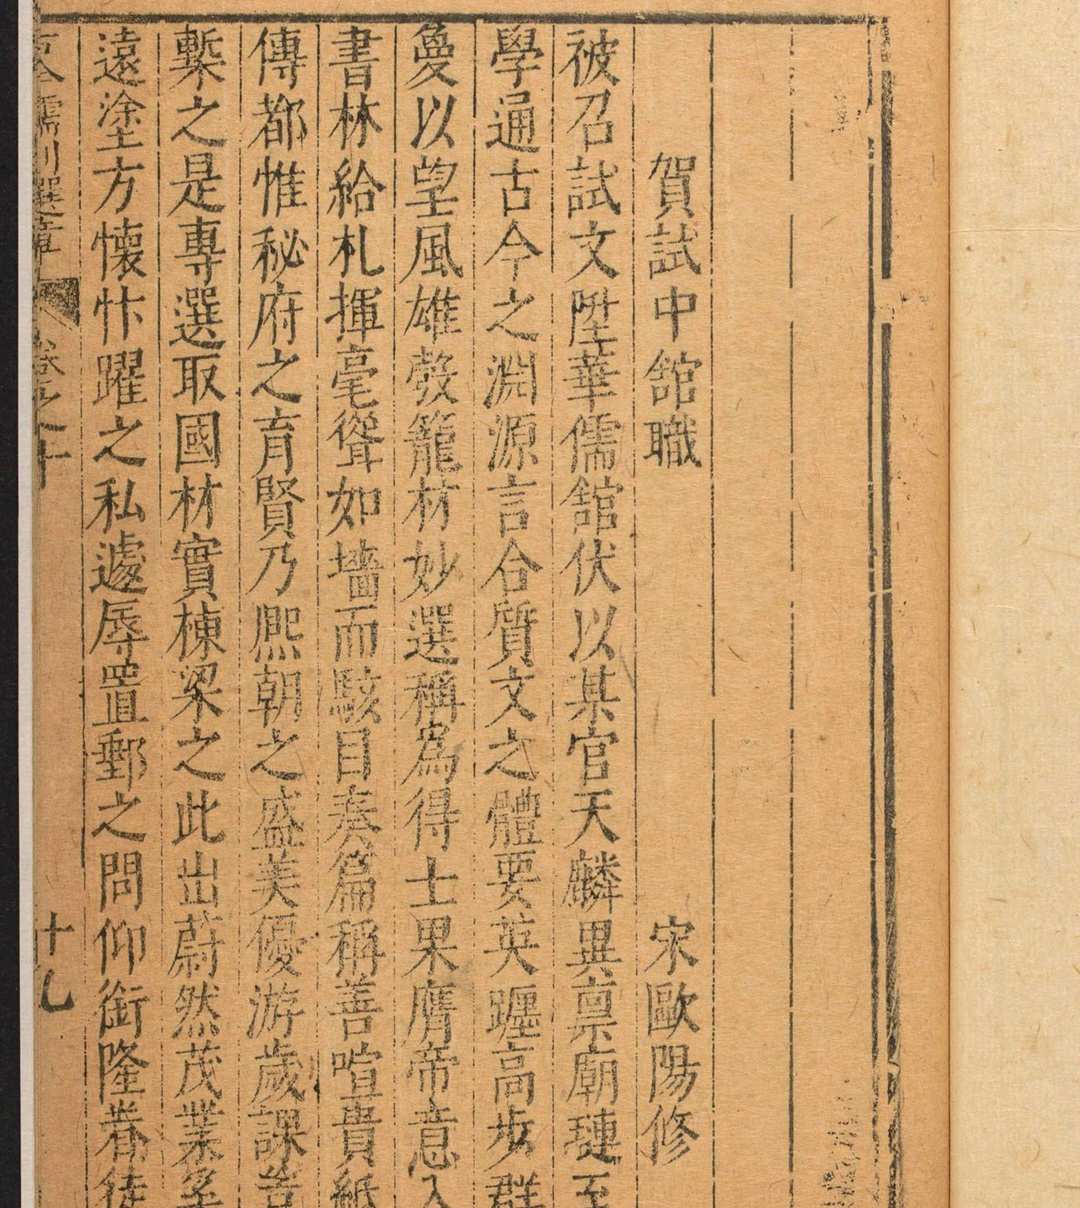 賀試中舘職 宋歐陽修
被召試文陞華儒舘伏以某官天麟異禀廟璉至
學通古今之淵源言合質文之體要英躔高步群
以望風雄彀籠材妙選稱為得士果膺帝意入
書林給札揮毫聳如墻而駭目奏篇稱善喧貴紙
傳都惟秘府之育賢乃熈朝之盛美優游歲課
槧之是專選取國材實棟梁之此出蔚然茂業
遠塗方懷忭躍之私遽辱置郵之問仰銜隆眷徒
選章 卷之十
十九